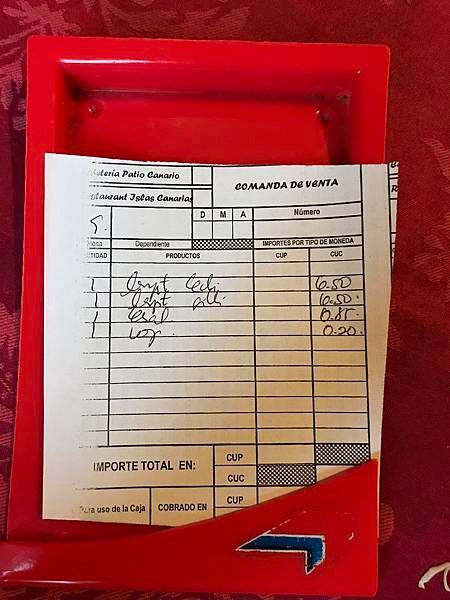 etería Patio Canario
staurant Islas Canarias
COMANDA DE VENTA
5.
D M A Número
Mesa Dependiente IMPORTES POR TIPO DE MONEDA
TIDAD PRODUCTOS CUP CUC
1 6.50
1 6.50.
1 0.85.
1 0.20.
IMPORTE TOTAL EN: CUP
CUC
Para uso de la Caja COBRADO EN CUP